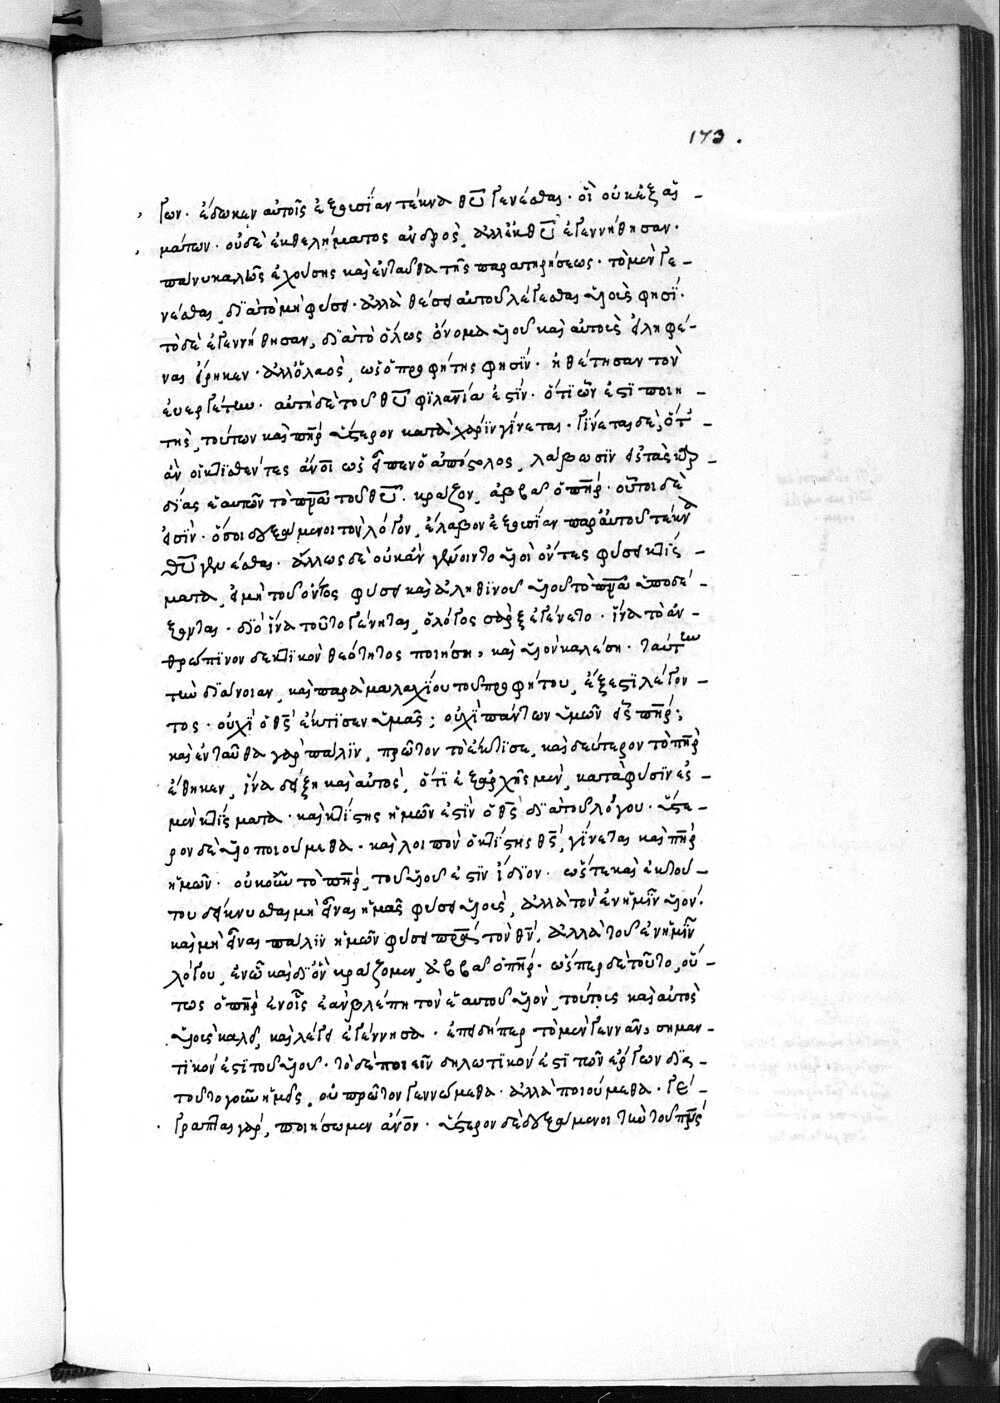 173.
γων· ἔδωκεν αὐτοῖς ἐξουσίαν τέκνα θῡ γενέσθαι· οἳ οὐκ ἐξ αἱ-
μάτων· οὐδὲ ἐκ θελήματος ἀνδρὸς, ἀλλ' ἐκ θῡ ἐγεννήθησαν·
πάνυ καλῶς ἐχούσης καὶ ἐνταῦθα τῆς παρατηρήσεως· τὸ μὲν γε-
νέσθαι, διὰ τὸ μὴ φύσει· ἀλλὰ θέσει αὐτοὺς λέγεσθαι υἱοὺς φησί·
τὸ δὲ ἐγεννήθησαν, διὰ τὸ ὅλως ὄνομα υἱοῦ καὶ αὐτοὺς εἰληφέ-
ναι εἴρηκεν· ἀλλ' ὁ λαὸς, ὡς ὁ προφήτης φησὶν· ἠθέτησαν τὸν
εὐεργέτην· αὕτη δὲ τοῦ θῡ φιλανία ἐστὶν· ὅτι ὧν ἐστὶ ποιη-
τὴς, τούτων καὶ πηρ ὕστερον κατὰ χάριν γίνεται· γίνεται δὲ, ὅτ'
ἂν οἱ κτισθέντες ἄνοι ὡς εἶπεν ὁ ἀπόστολος, λάβωσιν εἰς τὰς καρ-
δίας ἑαυτῶν τὸ πνα τοῦ θῡ. κράζον, ἀββᾶ ὁ πηρ· οὗτοι δὲ
εἰσὶν· ὅσοι δεξάμενοι τὸν λόγον, ἔλαβον ἐξουσίαν παρ' αὐτοῦ τέκνα
θῡ γενέσθαι· ἄλλως δὲ οὐκ ἂν γένοιντο υἱοὶ ὄντες φύσει κτίσ-
ματα, εἰ μὴ τοῦ ὄντος φύσει καὶ ἀληθινοῦ υἱοῦ τὸ πνα ὑποδέ-
ξονται· διὸ ἵνα τοῦτο γένηται, ὁ λόγος σὰρξ ἐγένετο· ἵνα τὸν ἄν-
θρωπινον δεκτικὸν θεότητος ποιήσῃ, καὶ υἱὸν καλέσῃ· ταύτην
τὴν διάνοιαν, καὶ παρὰ μαλαχίου τοῦ προφήτου, ἔξεστι λέγον-
τος· οὐχὶ ὁ θς ἔκτισεν ὑμᾶς; οὐχὶ πάντων ὑμῶν εἷς πηρ;
καὶ ἐνταῦθα γὰρ πάλιν, πρῶτον τὸ ἔκτισε, καὶ δεύτερον τὸ πηρ
ἔθηκεν, ἵνα δείξῃ καὶ αὐτὸς, ὅτι ἐξ ἀρχῆς μὲν, κατὰ φύσιν ἐσ-
μὲν κτίσματα· καὶ κτίστης ἡμῶν ἐστὶν ὁ θς διὰ τοῦ λόγου· ὕστε-
ρον δὲ υἱοποιούμεθα· καὶ λοιπὸν ὁ κτίστης θς, γίνεται καὶ πηρ
ἡμῶν· οὐκοῦν τὸ πηρ, τοῦ υἱοῦ ἐστὶν ἴδιον· ὥστε καὶ ἐκ τού-
του δείκνυσθαι μὴ εἶναι ἡμᾶς φύσει υἱοὺς, ἀλλὰ τὸν ἐν ἡμῖν υἱόν·
καὶ μὴ εἶναι πάλιν ἡμῶν φύσει πρα τὸν θν, ἀλλὰ τοῦ ἐν ἡμῖν
λόγου, ἐν ᾧ καὶ δι' ὃν κράζομεν, ἀββᾶ ὁ πηρ· ὥσπερ δὲ τοῦτο, οὕ-
τως ὁ πηρ ἐν οἷς ἐὰν βλέπῃ τὸν ἑαυτοῦ υἱὸν, τούτους καὶ αὐτὸς
υἱοὺς καλεῖ, καὶ λέγει ἐγέννησα· ἐπειδήπερ τὸ μὲν γεννᾶν, σημαν-
τικόν ἐστι τοῦ υἱοῦ· τὸ δὲ ποιεῖν δηλωτικόν ἐστι τῶν ἔργων διὰ
τοῦτο γοῦν ἡμεῖς, οὐ πρῶτον γεννώμεθα· ἀλλὰ ποιούμεθα· γέ-
γραπται γάρ, ποιήσωμεν ἄνον· ὕστερον δὲ δεξάμενοι τὴν τοῦ πνς